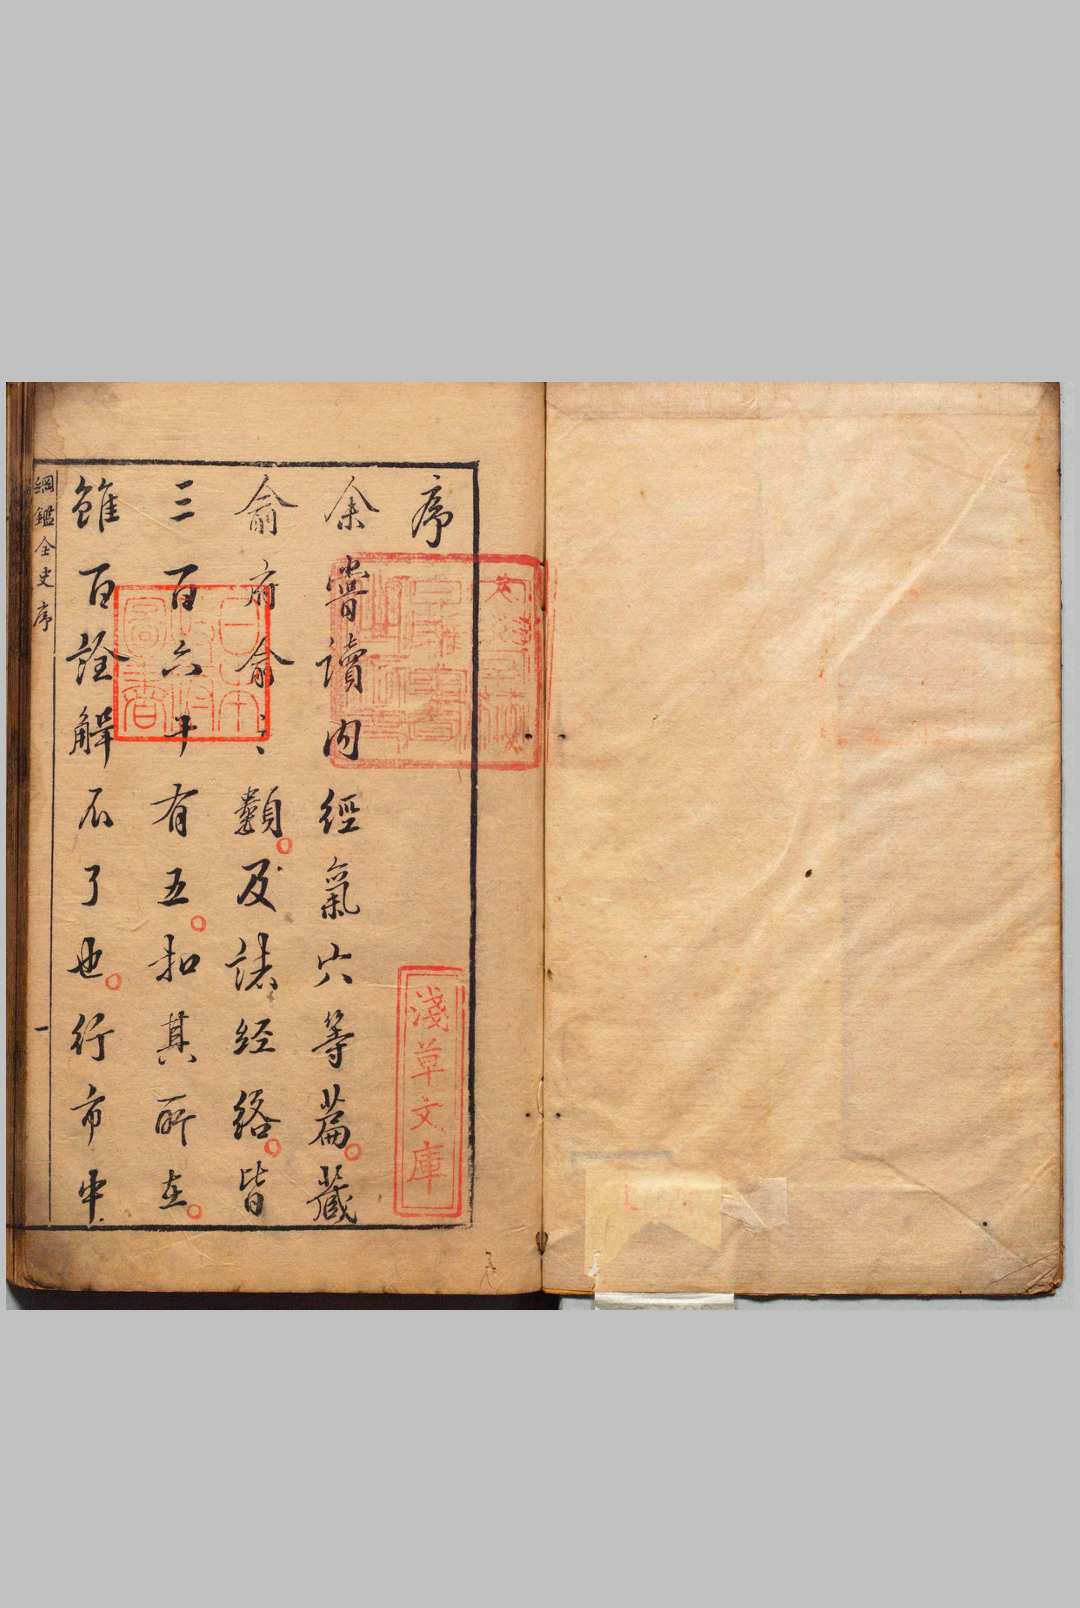 序
余嘗讀内經氣穴等篇藏
俞府俞之類及諸經絡皆
三百六十有五扣其所在
雖百詮解不了也行市中
綱鑑全史序
一
淺草文庫
日本政府圖書